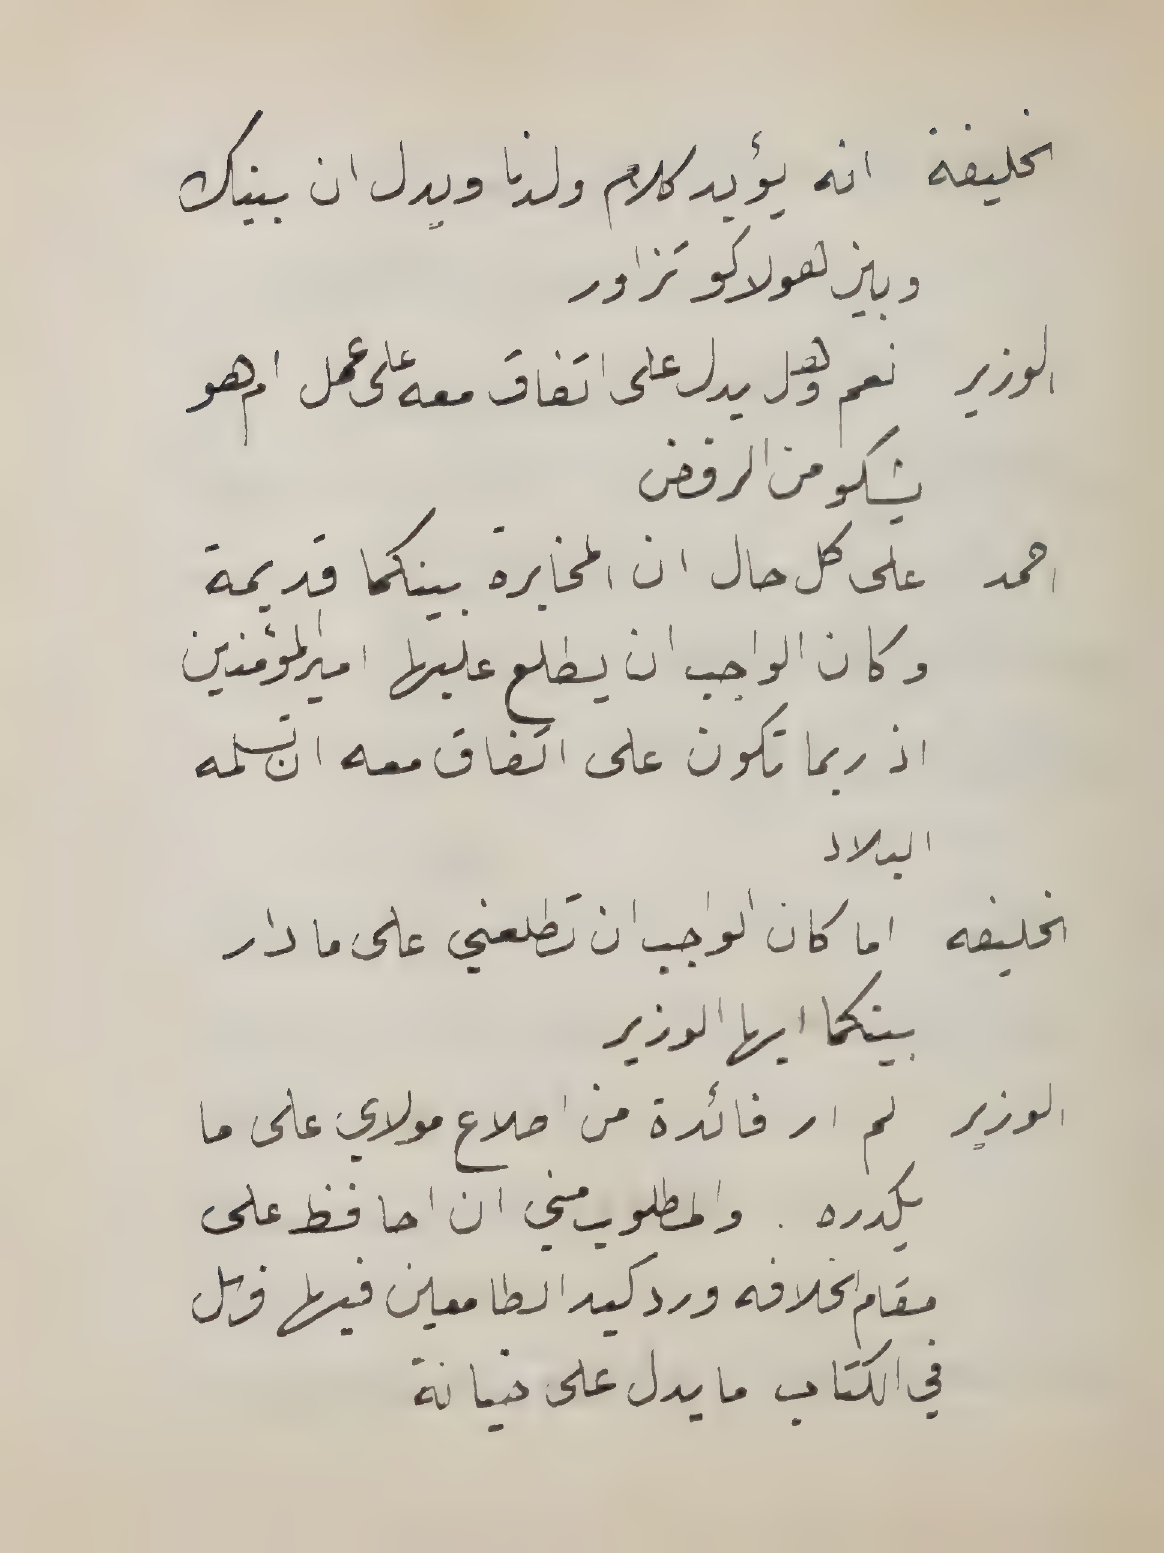 الخليفة انه يؤيد كلام ولدنا ويدل ان بينك
وبين هولاكو تزاور
الوزير نعم وهل يدل على اتفاق معه على عمل ام هو
يشكو من الرفض
احمد على كل حال ان المخابرة بينكما قديمة
وكان الواجب ان يطلع عليها امير المؤمنين
اذ ربما تكون على اتفاق معه ان تسلمه
البلاد
الخليفه اما كان الواجب ان تطلعني على ما دار
بينكما ايها الوزير
الوزير لم ار فائدة من اطلاع مولاي على ما
يكدره . والمطلوب مني ان احافظ على
مقام الخلافه ورد كيد الطامعين فيها وهل
في الكتاب ما يدل على خيانة